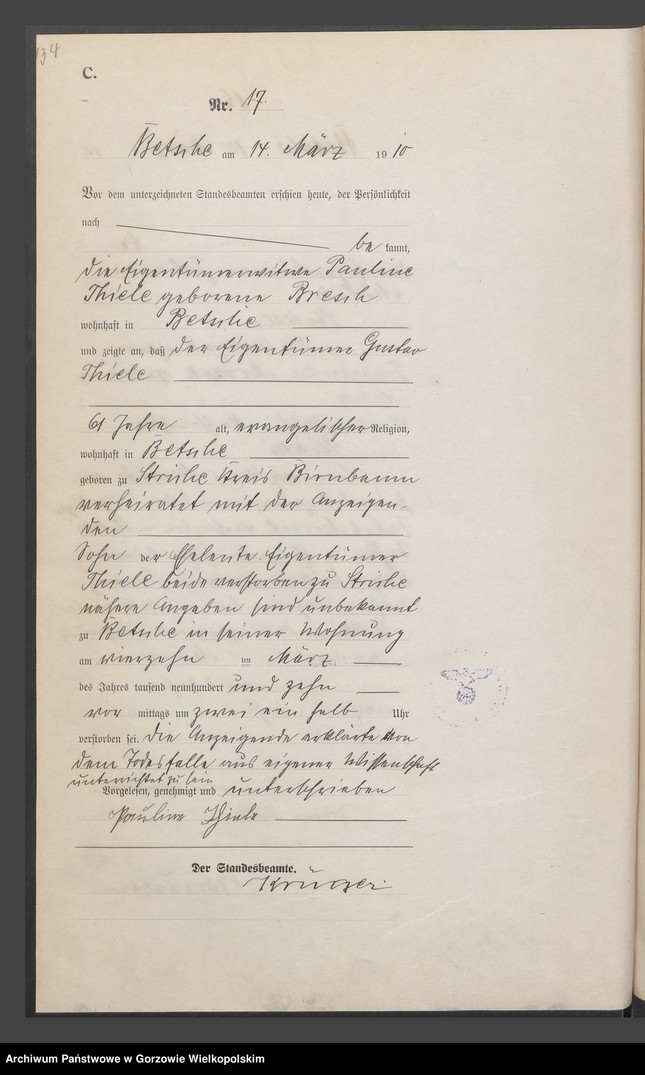 134
C.
Nr. 17.
Betsche am 14. März 1910
Vor dem unterzeichneten Standesbeamten erschien heute, der Persönlichkeit
nach
be kannt,
die Eigentümerwitwe Pauline
Thiele geborene Bresch
wohnhaft in Betsche
und zeigte an, daß der Eigentümer Gustav
Thiele
61 Jahre alt, evangelischer Religion,
wohnhaft in Betsche
geboren zu Striche Kreis Birnbaum
verheiratet mit der Anzeigen-
den
Sohn der Eheleute Eigentümer
Thiele beide verstorben zu Striche
nähere Angaben sind unbekannt
zu Betsche in seiner Wohnung
am vierzehn ten März
des Jahres tausend neunhundert und zehn
vor mittags um zwei ein halb Uhr
verstorben sei. Die Anzeigende erklärte von
dem Todesfalle aus eigener Wissenschaft
unterrichtet zu sein
Vorgelesen, genehmigt und unterschrieben
Pauline Thiele
Der Standesbeamte.
Krüger
Archiwum Państwowe w Gorzowie Wielkopolskim